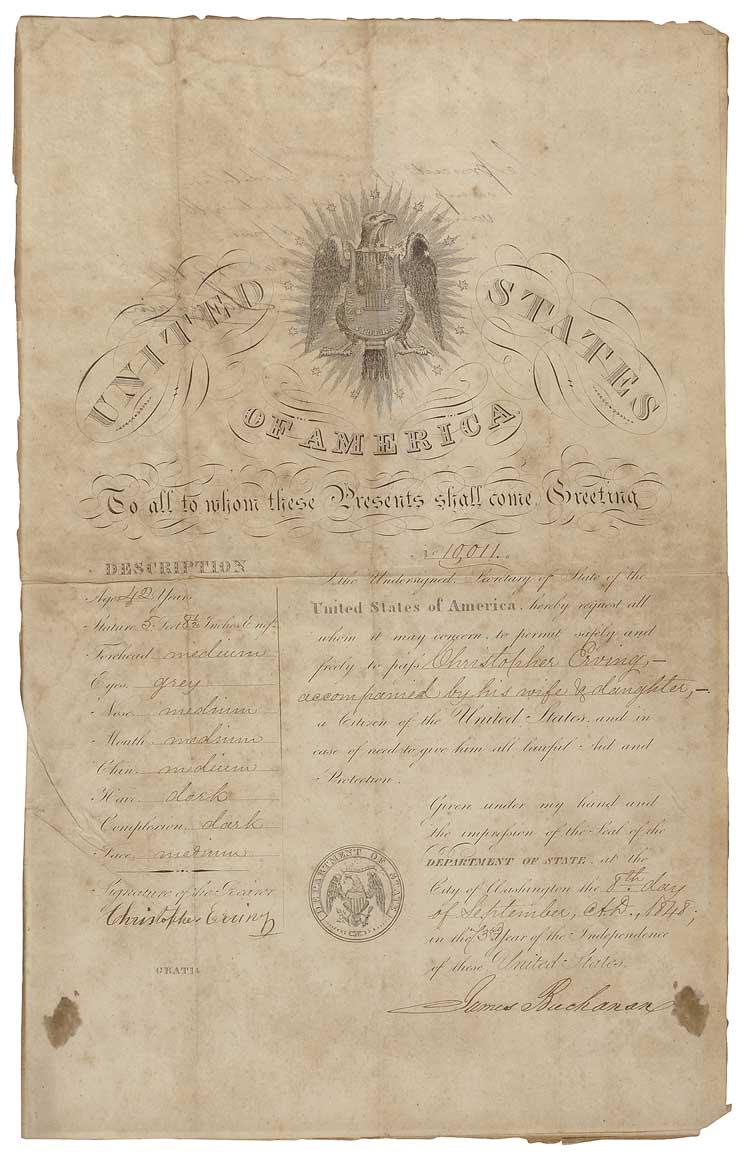 UNITED STATES
OF AMERICA
To all to whom these Presents shall come Greeting
No 10,011.
DESCRIPTION
Age 42 Years
Stature 5 Feet 8½ Inches Engl.
Forehead medium
Eyes grey
Nose medium
Mouth medium
Chin medium
Hair dark
Complexion dark
Face medium
Signature of the Bearer
Christopher Erving
GRATIS.
I the Undersigned, Secretary of State of the
United States of America, hereby request all
whom it may concern, to permit safely and
freely to pass Christopher Erving,—
accompanied by his wife & daughter,—
a Citizen of the United States, and in
case of need to give him all lawful Aid and
Protection.
Given under my hand and
the impression of the Seal of the
DEPARTMENT OF STATE, at the
City of Washington the 8th day
of September, A.D., 1848;
in the 73rd Year of the Independence
of these United States.
James Buchanan
DEPARTMENT OF STATE